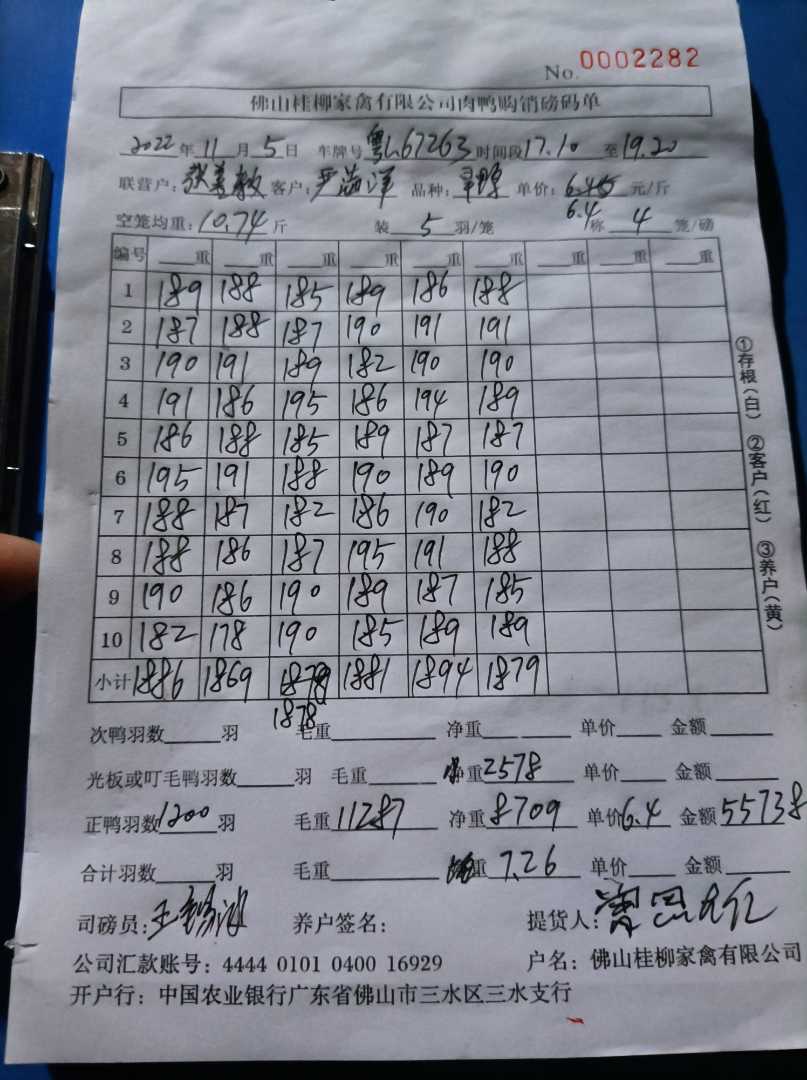 No. 0002282
佛山桂柳家禽有限公司肉鸭购销磅码单
2022年11月5日 车牌号粤L67263时间段17.10至19.20
联营户: 客户:严 洋 品种: 单价:6.45元/斤
6.4
空笼均重:10.74斤 装5羽/笼 称4笼/磅
编号 重 重 重 重 重 重 重 重 重
1 189 188 185 189 186 188
2 187 188 187 190 191 191
3 190 191 189 182 190 190
4 191 186 195 186 194 189
5 186 188 185 189 187 187
6 195 191 188 190 189 190
7 188 187 182 186 190 182
8 188 186 187 195 191 188
9 190 186 190 189 187 185
10 182 178 190 185 189 189
小计 1886 1869 1879 1881 1894 1879
1878
次鸭羽数 羽 毛重 净重 单价 金额
光板或叮毛鸭羽数 羽 毛重 净重2578 单价 金额
正鸭羽数1200羽 毛重11287 净重8709 单价6.4 金额55738
合计羽数 羽 毛重 重7.26 单价 金额
司磅员:王 养户签名: 提货人:
公司汇款账号:4444 0101 0400 16929 户名:佛山桂柳家禽有限公司
开户行:中国农业银行广东省佛山市三水区三水支行
①存根(白) ②客户(红) ③养户(黄)